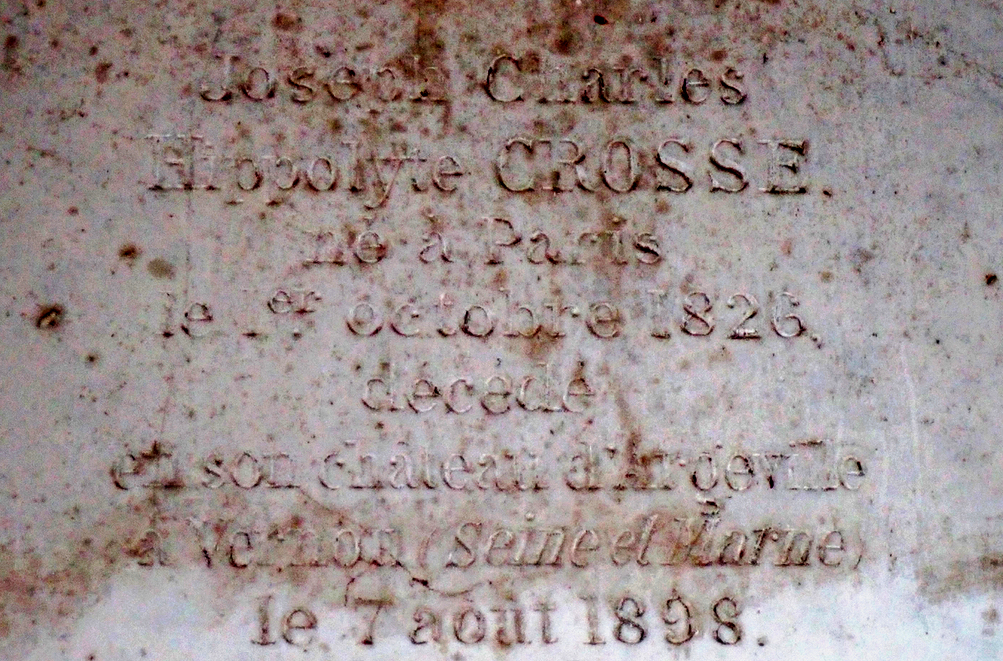 Joseph Charles
Hippolyte CROSSE.
né à Paris
le 1er octobre 1826,
décédé
en son château d'Argeville
à Vernou (Seine et Marne)
le 7 août 1898.